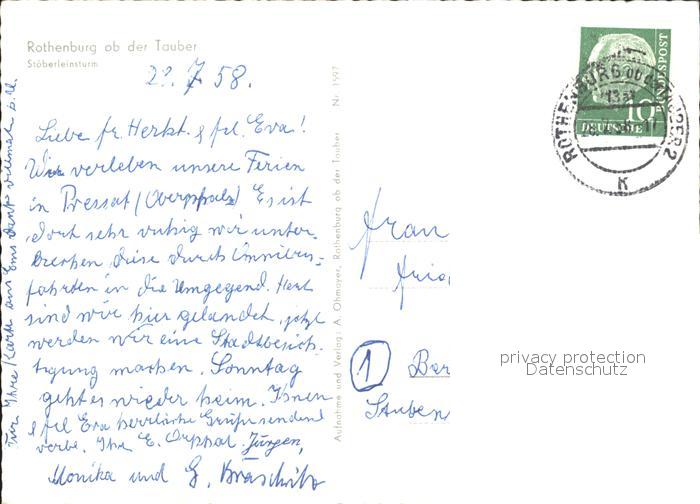 Rothenburg ob der Tauber
Stöberleinsturm
22. 7. 58.
Liebe fr. Herkt. & frl. Eva!
Wir verleben unsere Ferien
in Pressat/(Oberpfalz) Es ist
dort sehr ruhig wir unter-
brechen diese durch Omnibus-
fahrten in die Umgegend. Heut
sind wir hier gelandet, jetzt
werden wir eine Stadtbesich-
tigung machen. Sonntag
geht es wieder heim. Ihnen
& frl Eva herzliche Grüße sendend
verbl. Ihre E. Orphal. Jürgen,
Monika und G.
Für Ihre Karte aus Ems dank vielmals d. O.
Aufnahme und Verlag: A. Ohmayer, Rothenburg ob der Tauber Nr. 1597
DEUTSCHE BUNDESPOST
10
ROTHENBURG OB DER TAUBER 2
k
Frau
1 Ber
Stuben
privacy protection
Datenschutz